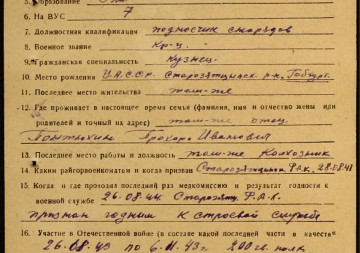 5. Образование
6. На ВУС 7
7. Должностная квалификация подносчик снарядов
8. Военное звание Кр-ц.
9. Гражданская специальность Кузнец.
10. Место рождения У.А.С.С.Р. Старозятцинск. р-н,
11. Последнее место жительства там-же
12. Где проживает в настоящее время семья (фамилия, имя и отчество жены или
родителей и точный их адрес) там-же отец
Прохор Иванович
13. Последнее место работы и должность там-же Колхозник
14. Каким райгорвоенкоматом и когда призван Старозятцинским Р.В.К.
15. Когда и где проходил последний раз медкомиссию и результат годности к
военной службе 26.08.44 Старозятц. Р.В.К.
признан годным к строевой службе
16. Участие в Отечественной войне (в составе какой последней части в качестве
26.08.43 по 6.11.43г. 200 гв. полк